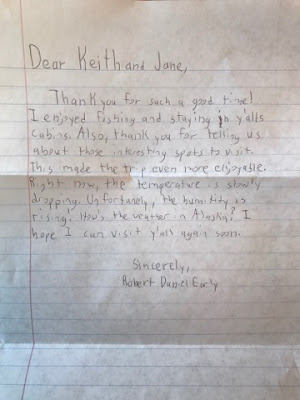 Dear Keith and Jane,
Thank you for such a good time!
I enjoyed fishing and staying in y'alls
cabins. Also, thank you for telling us
about those interesting spots to visit.
This made the trip even more enjoyable.
Right now, the temperature is slowly
dropping. Unfortunely, the humidity is
rising! How's the weather in Alaska? I
hope I can visit y'all again soon.
Sincerely,
Robert Daniel Early